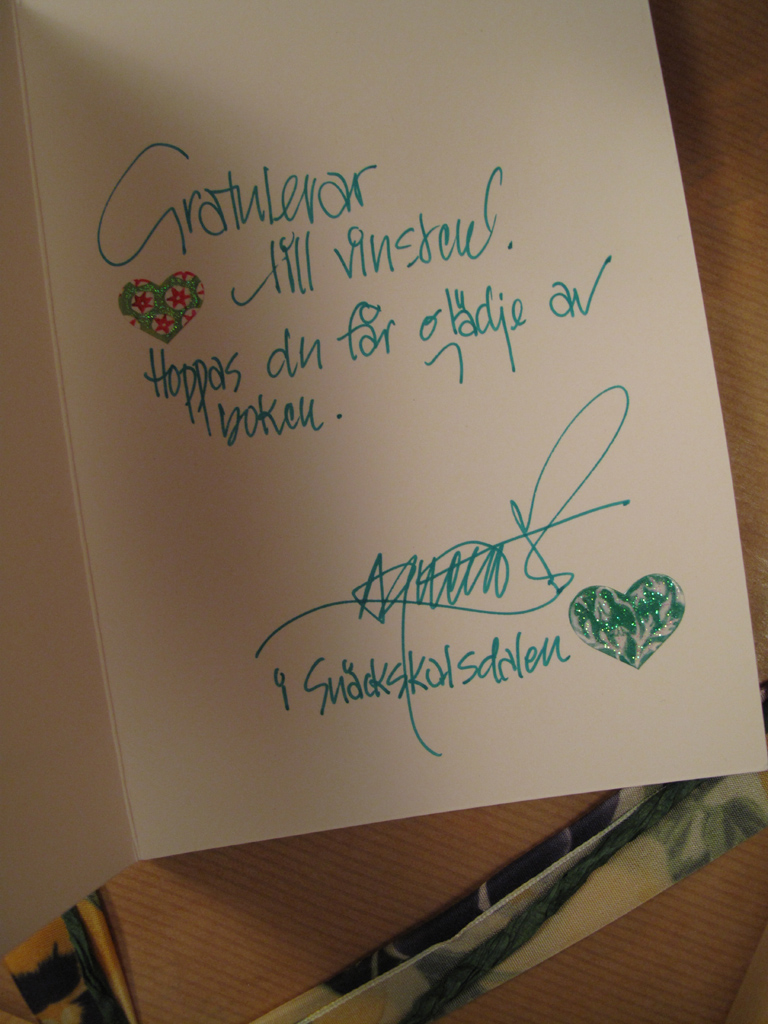 Gratulerar
till vinsten!
Hoppas du får glädje av
boken.
i Snäckskalsdalen